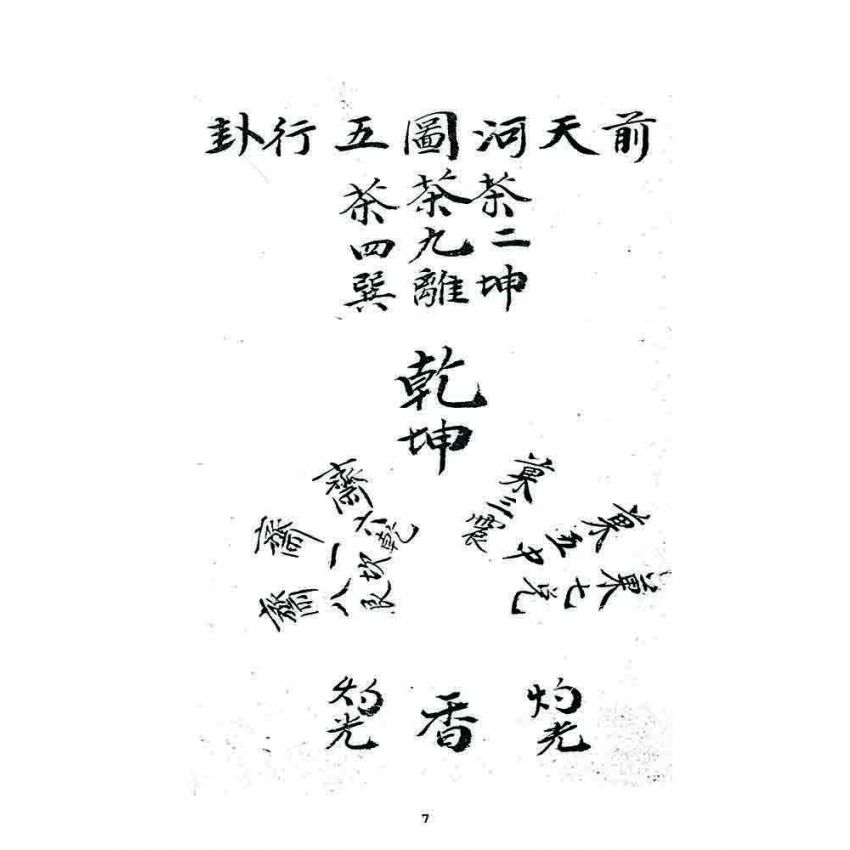 前天河圖五行卦
茶二坤
茶九離
茶四巽
乾坤
菓三震
菓五中
菓七兌
齋六乾
齋一坎
齋八艮
灼光
香
灼光
7